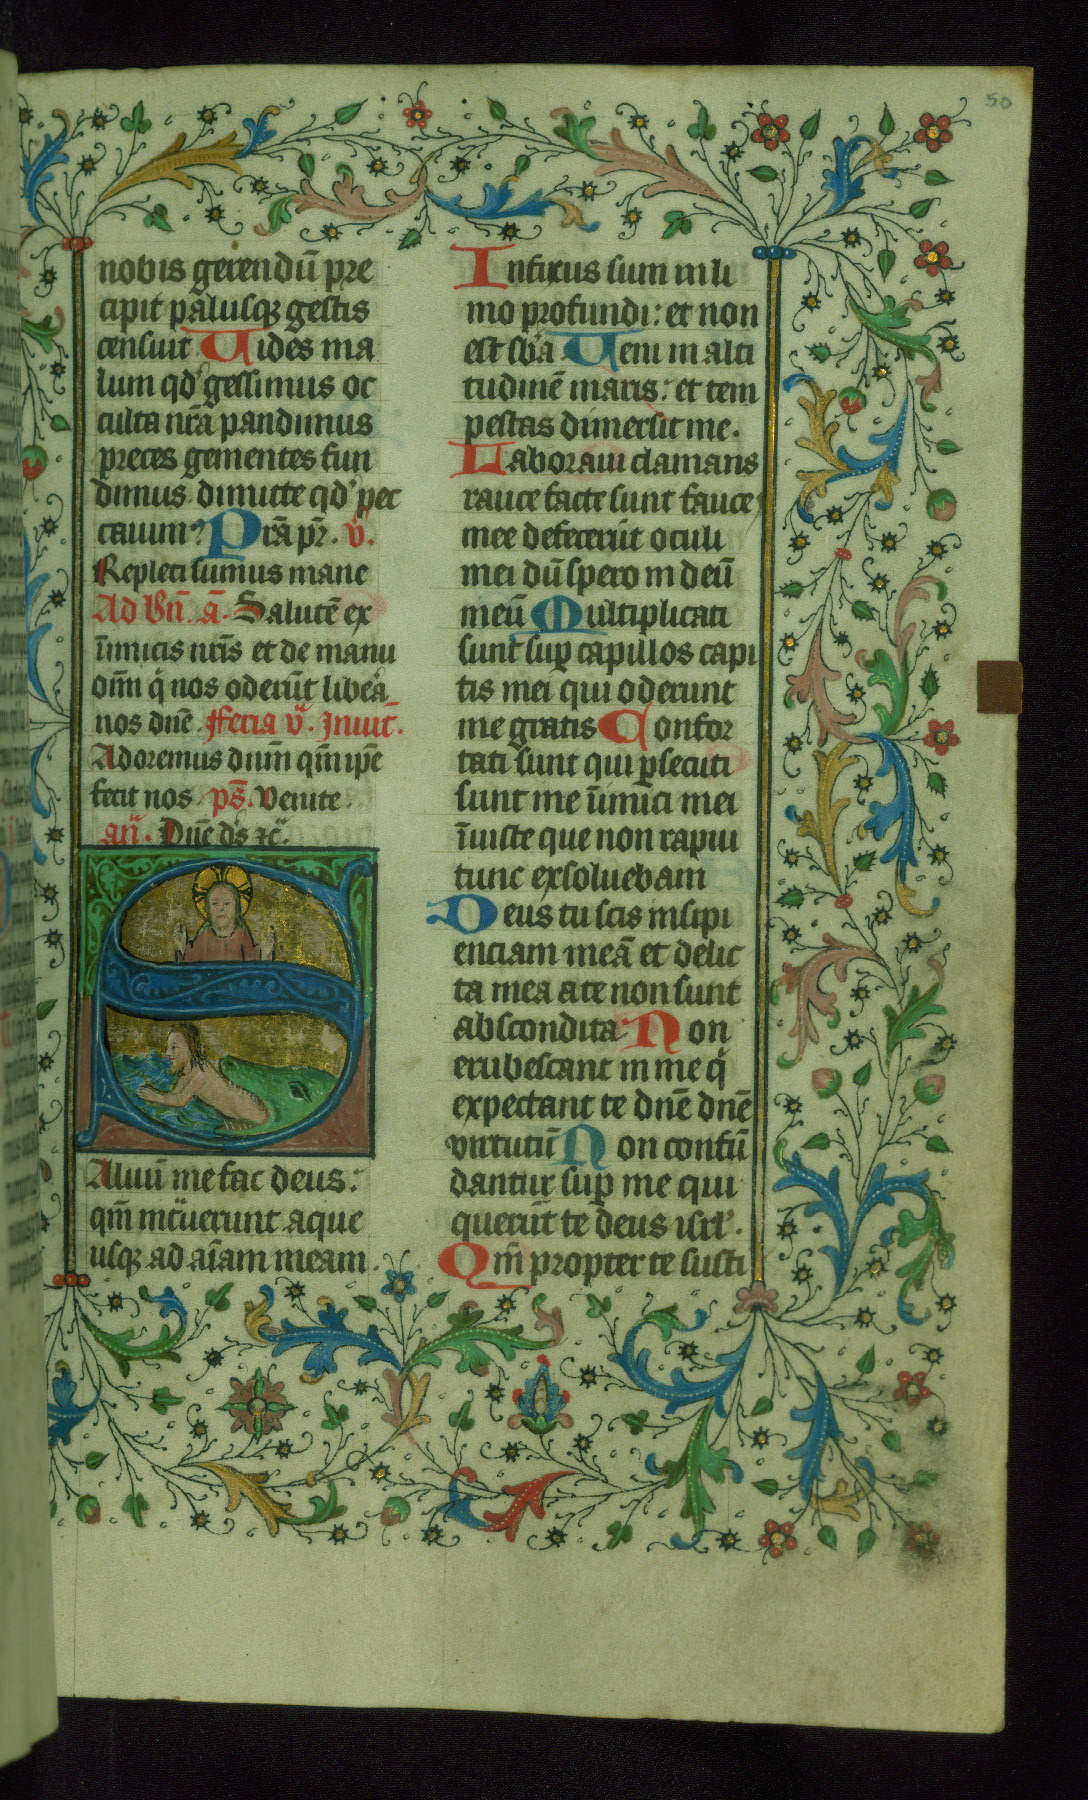 50
nobis gerendū pre
cipit paulusq gestis
censuit Vides ma
lum qd gessimus oc
culta nrā pandimus
preces gementes fun
dimus dimitte qd pec
cauim Prestā pr̄. v̄.
Repleti sumus mane
Ad bn̄. ā. Salutē ex
īnimicis nrīs et de manu
om̄ q nos oderūt libera
nos dn̄e fferia v. Inuit̄.
Adoremus dnm qm̄ ip̄e
fecit nos. ps̄. Venite.
an̄. Dn̄e ds̄ zc̄.
Aluū me fac deus:
qm̄ intrauerunt aque
usq ad aīam meam.
Infixus sum in li
mo profundi: et non
est sba Veni in alti
tudinē maris: et tem
pestas dimersit me.
Laboraui clamans
rauce facte sunt fauce
mee defecerūt oculi
mei dū spero in deū
meū Multiplicati
sunt sup capillos capi
tis mei qui oderunt
me gratis Confor
tati sunt qui psecuti
sunt me īnimici mei
īniuste que non rapui
tunc exsoluebam
Deus tu scis insipi
enciam meā et delic
ta mea a te non sunt
abscondita Non
erubescant in me q
expectant te dnē dnē
virtutū Non confū
dantur sup me qui
querūt te deus isrl.
Qm̄ propter te susti